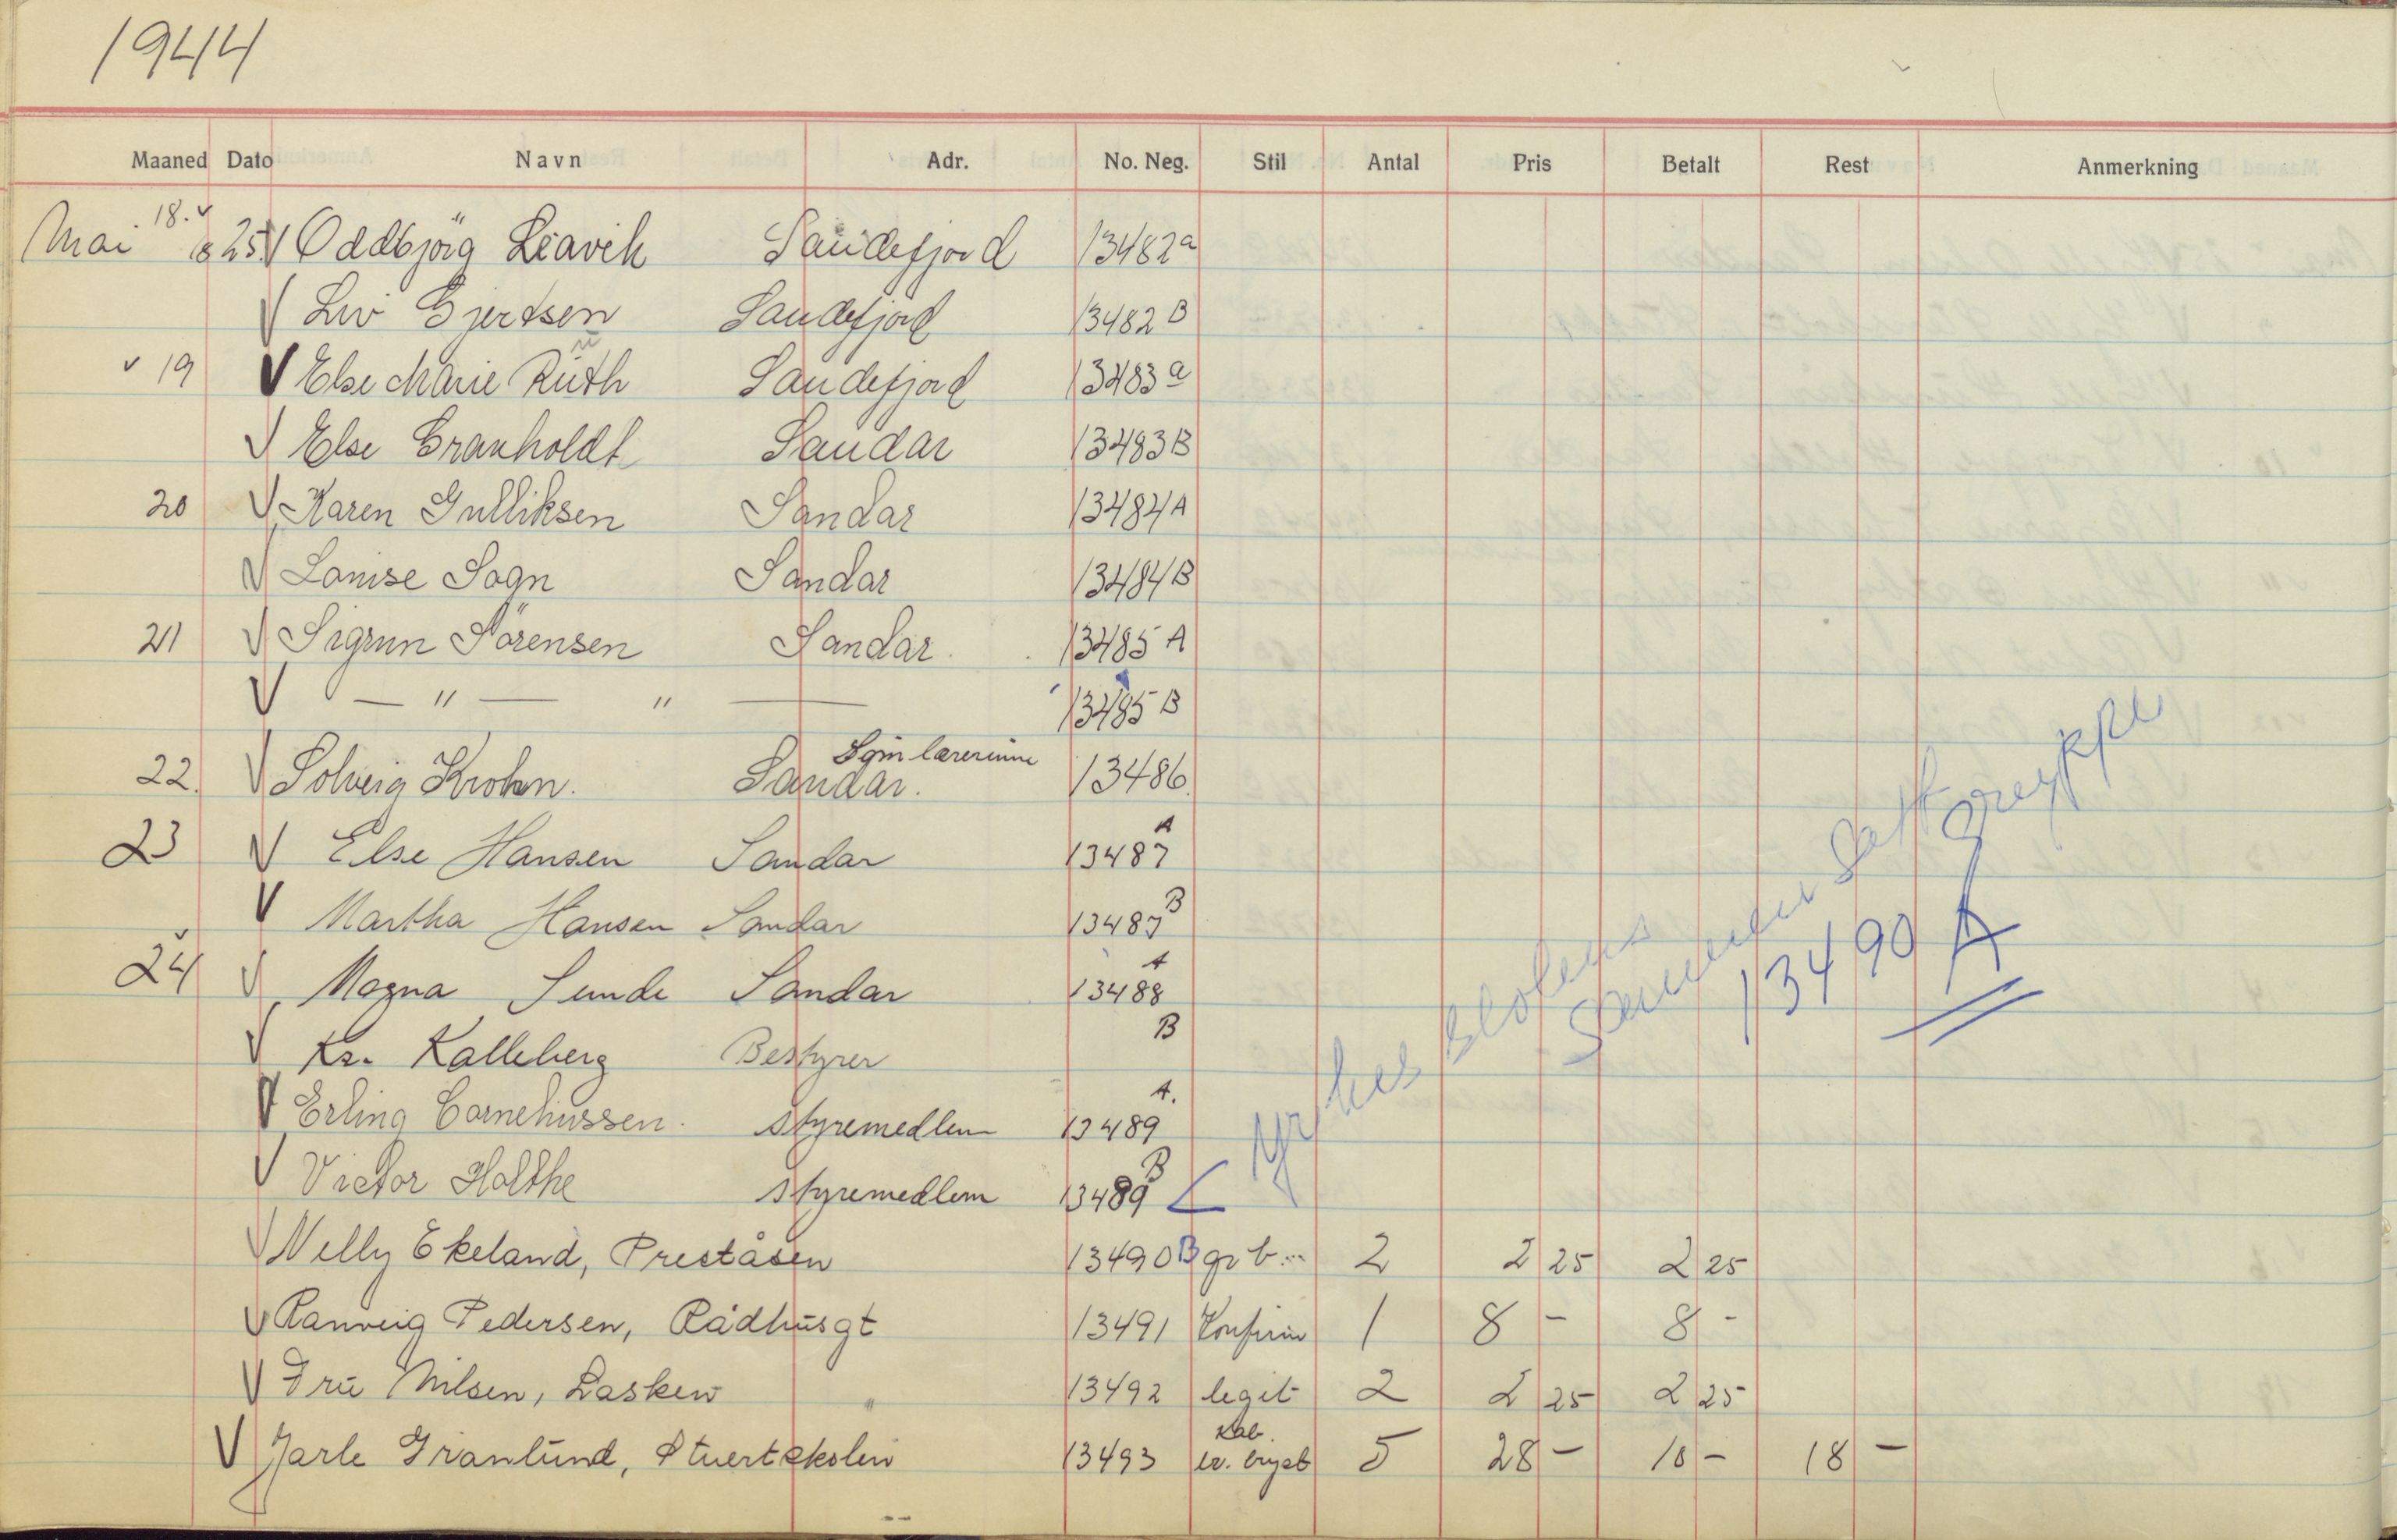 1944
Maaned Dato Navn Adr. No. Neg. Stil Antal Pris Betalt Rest Anmerkning
Mai 18. 25 Oddbjörg Leavik Sandefjord 13482a
Liv Gjertsen Sandefjord 13482 B
19 Else Marie Ruth Sandefjord 13483 a
Else Granholdt Sandar 13483 B
20 Karen Gulliksen Sandar 13484 A
Louise Sogn Sandar 13484 B
21 Sigrun Sörensen Sandar 13485 A
— " — " — 13485 B
22. Solveig Krohn. Sandar. Gym lærerinne 13486
23 Else Hansen Sandar 13487 A
Martha Hansen Sandar 13487 B
24 Magna Sunde Sandar 13488 A
Kr. Kalleberg Bestyrer B
Erling Cornehussen. styremedlem 13489 A.
Victor Holthe styremedlem 13489 B
Yrkes skolens
Sammen satt gruppe
13490 A
Nelly Ekeland, Preståsen 13490 B gr b 2 2 25 2 25
Ranveig Pedersen, Rådhusgt 13491 Konfirm 1 8 - 8 -
Fru Nilsen, Lasken " 13492 legit 2 2 25 2 25
Jarle Granlund, Stuertskolen 13493 Kab. br. bryst 5 28 - 10 - 18 -